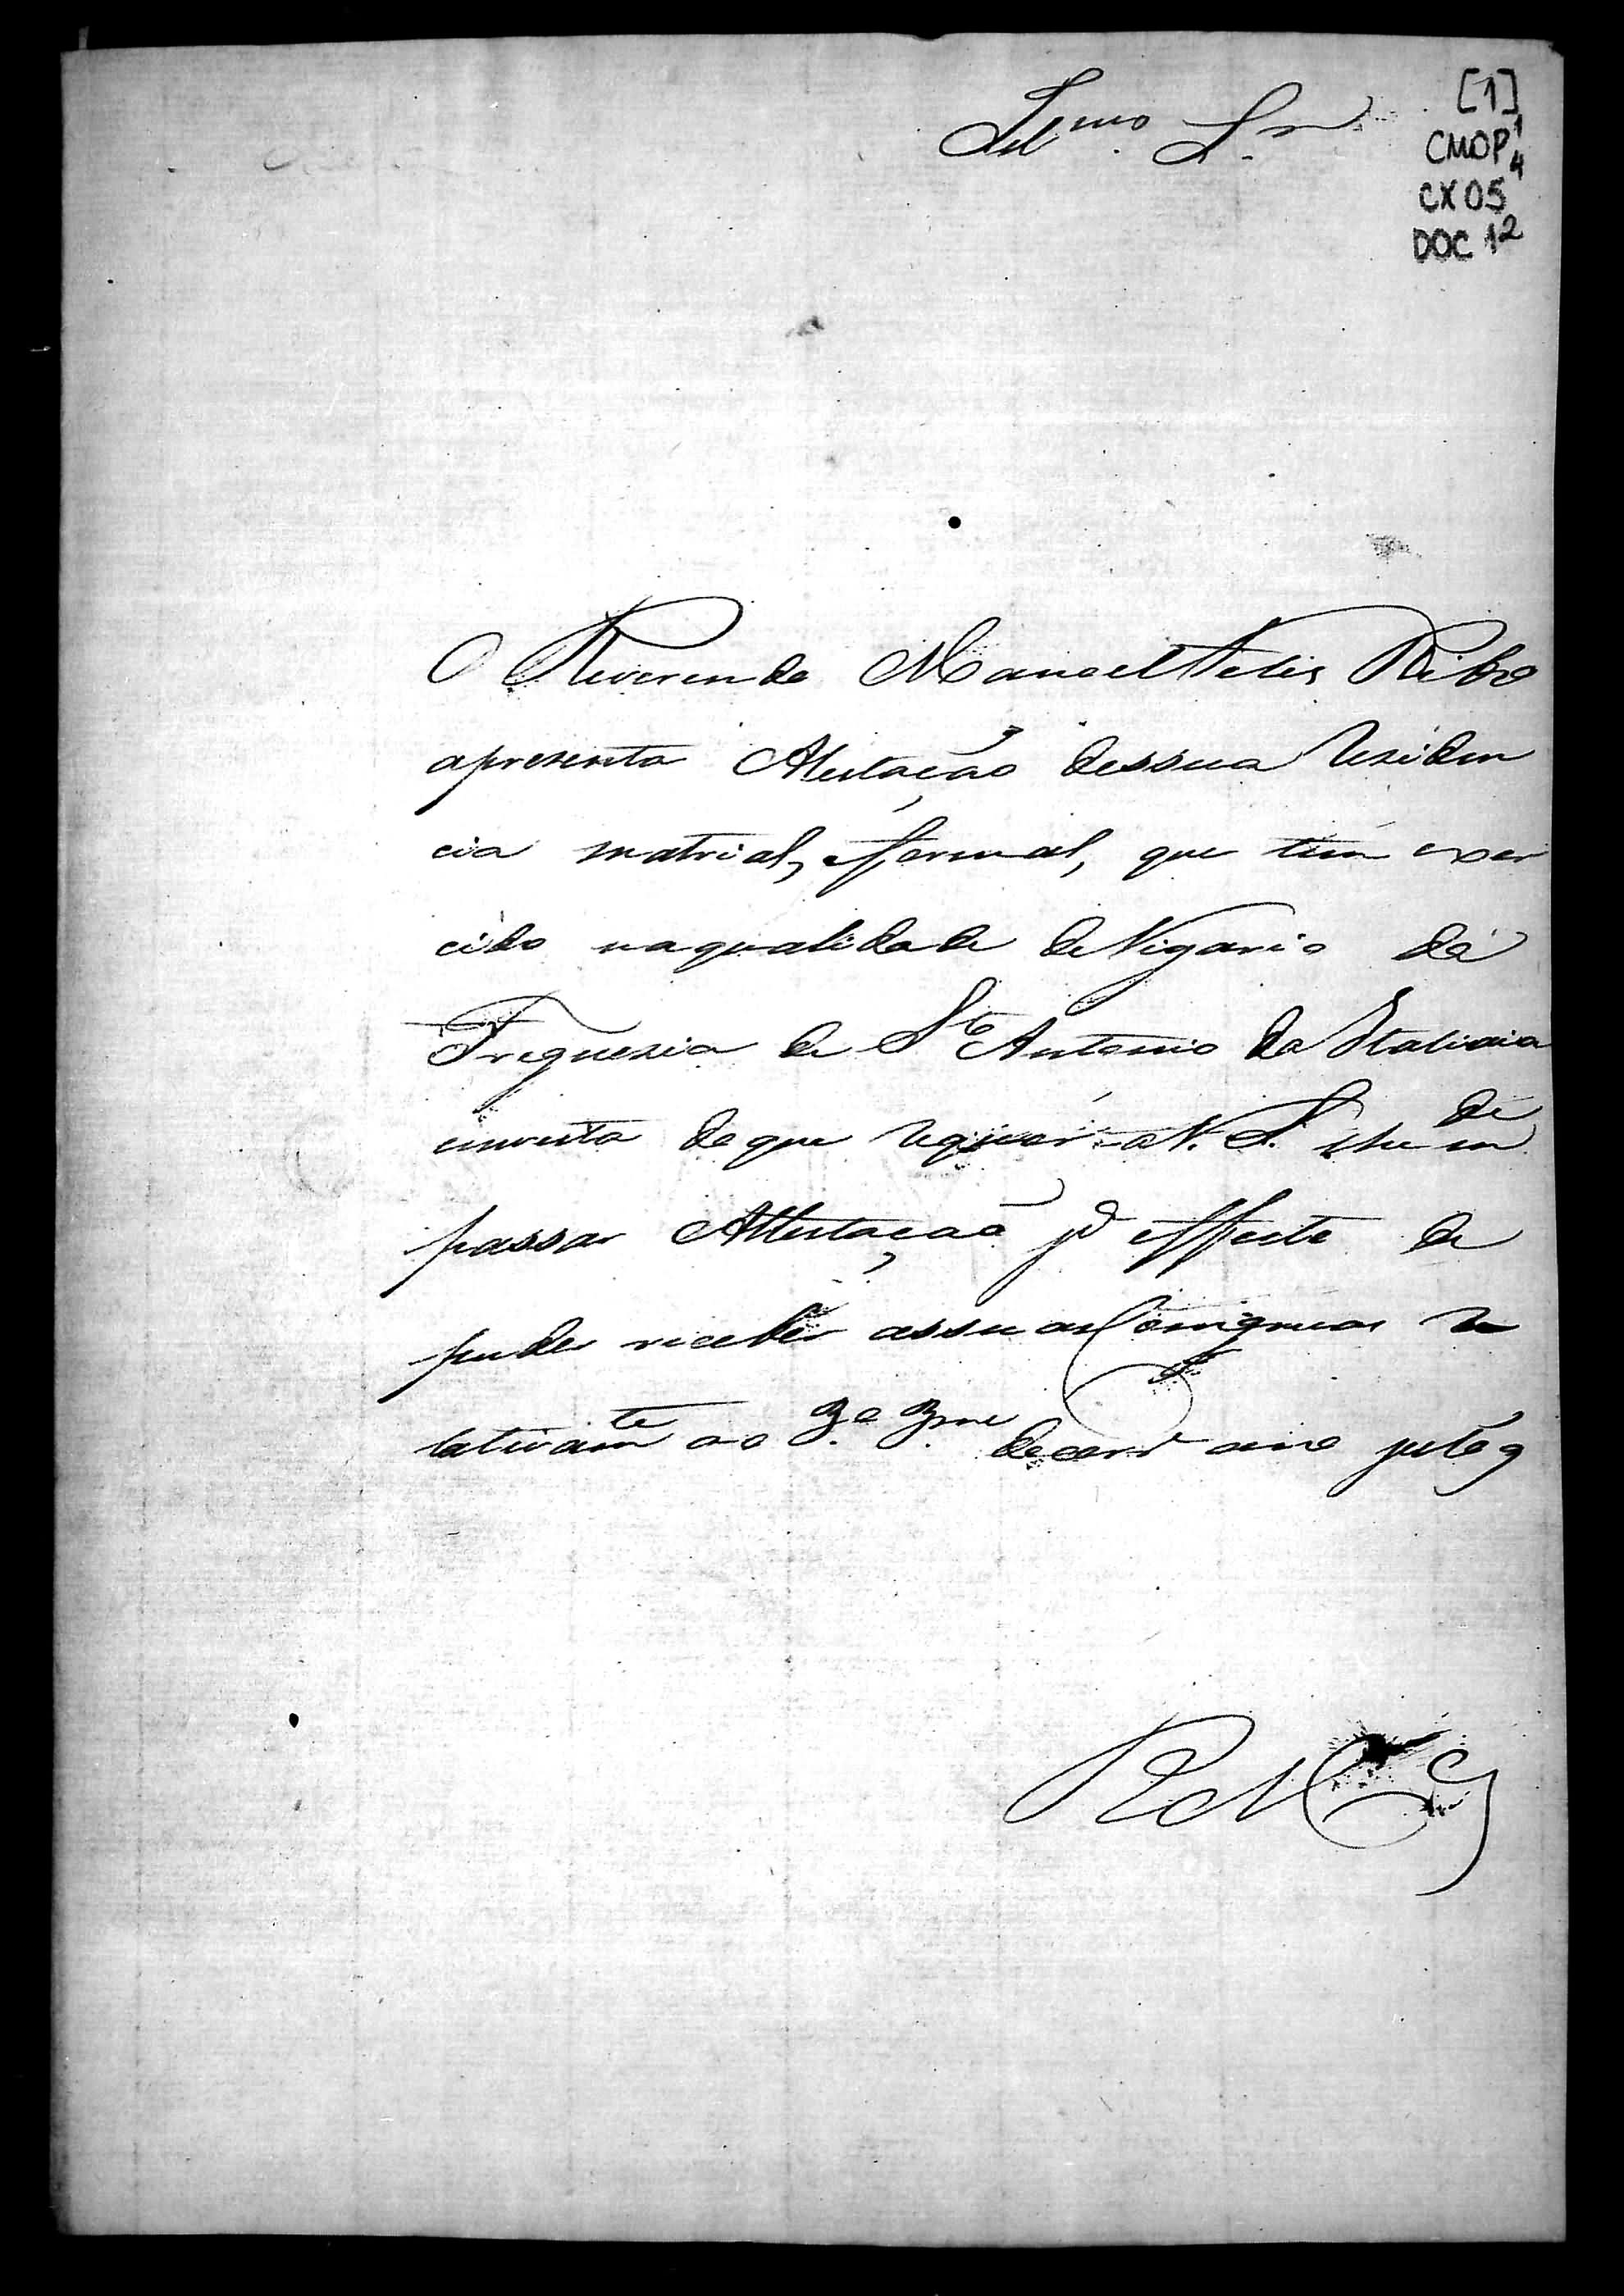 Illmo. Sr.
[1]
CMOP 1/4
CX 05
DOC 12
O Reverendo Manoel Telis Ribro
apresenta Atestação dessua residen
cia matrial, e formal, que tem exer
cido naqualidade de Vigario da
Freguesia de Sto Antonio da Itatiaia
emvista do que requer a V. S. lhe mde
passar Attestação pa effeito de
puder receber assuas Congruas re
lativamte ao 3o. 3me. do corr anno
R M